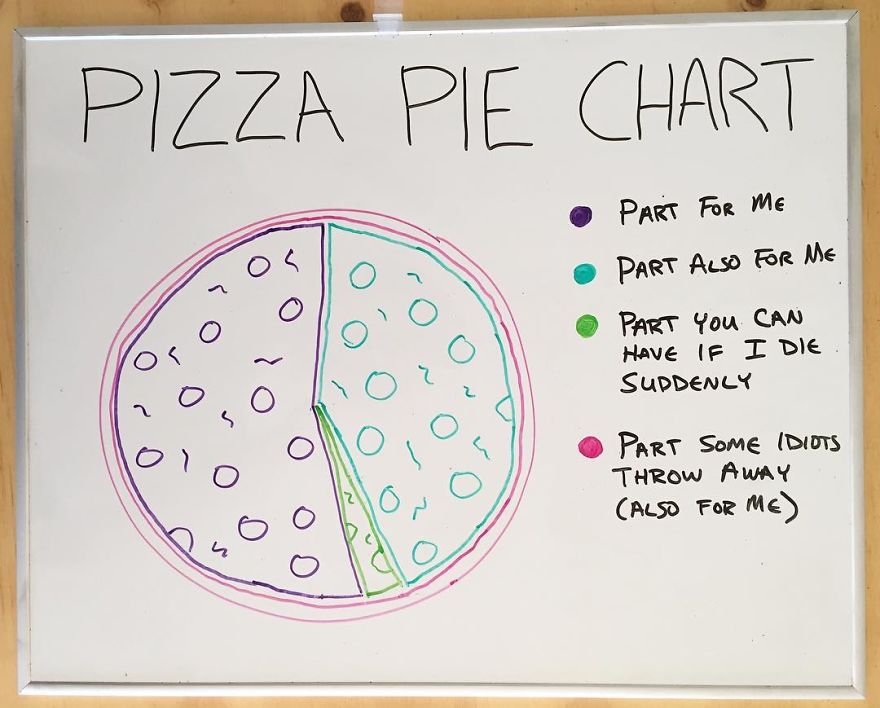 PIZZA PIE CHART
PART FOR ME
PART ALSO FOR ME
PART YOU CAN
HAVE IF I DIE
SUDDENLY
PART SOME IDIOTS
THROW AWAY
(ALSO FOR ME)